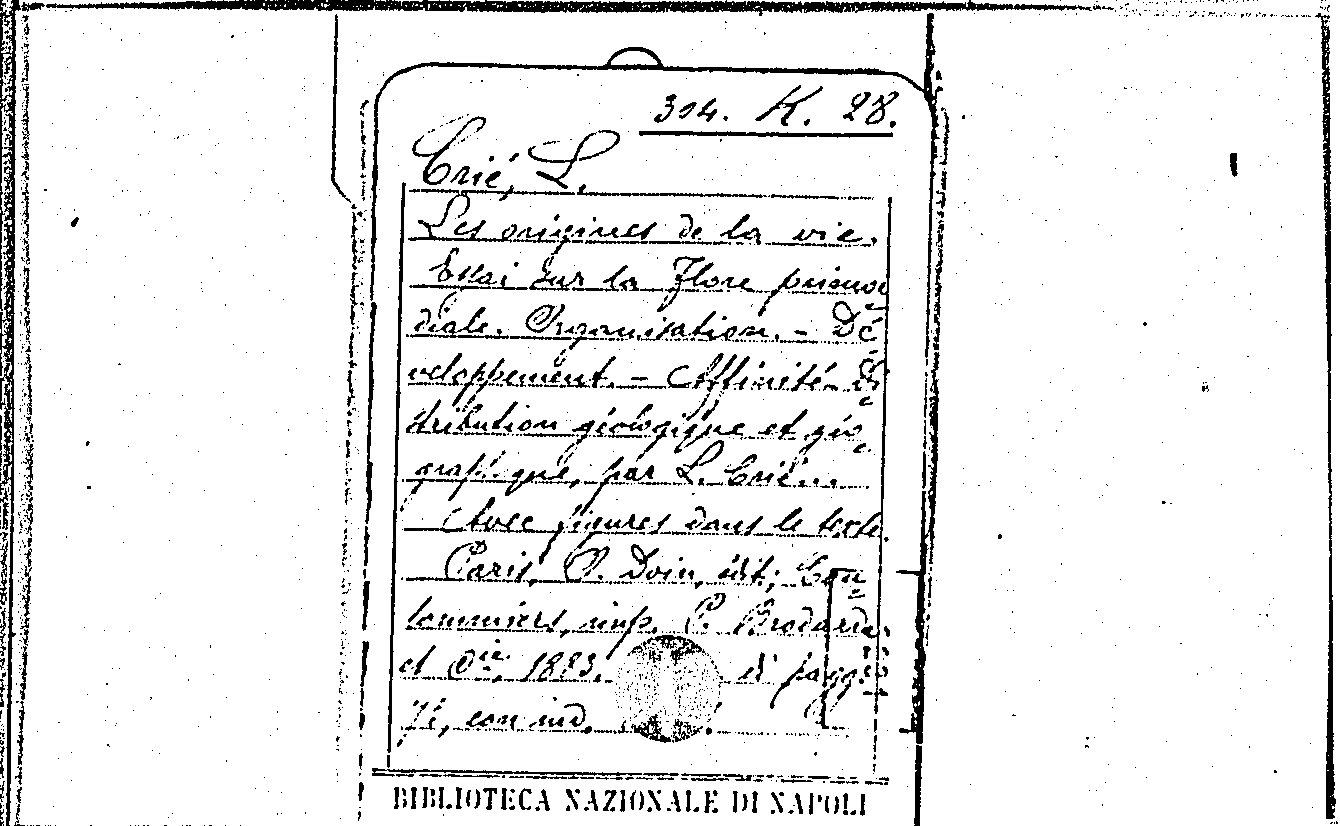 314. K. 28.
Crié, L.
Les origines de la vie.
Essai sur la Flore primor
diale. Organisation. - Dé
veloppement. - Affinité. Di
stribution géologique et géo
graphique, par L. Crié...
Avec figures dans le texte.
Paris, O. Doin, édit; Cou
lommiers, imp. P. Brodard,
et Cie, 1883. di pagg.
con ind.
BIBLIOTECA NAZIONALE DI NAPOLI